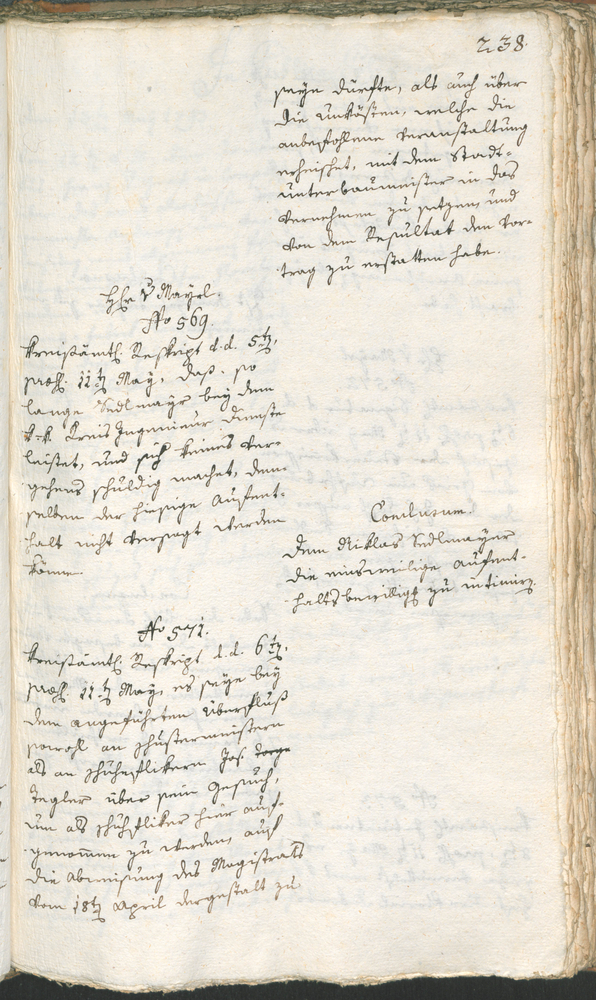 238.
seyn dürfte, als auch über
die Unkösten, welche die
anbefohlene Veranstaltung
erheischet, mit dem Stadt-
unterbaumeister in das
Vernehmen zu setzen, und
von dem Resultat den Vor-
trag zu erstatten habe.
Hr. v Mayrl
No 569
Kreisämtl. Reskript d. d. 5t.
praes. 11t. May, daß, so
lange Sedlmayr bey dem
k. k. Kreis Ingenieur Dienste
leistet, und sich keines Ver-
gehens schuldig machet, dem-
selben der hiesige Aufent-
halt nicht versagt werden
könne.
Conclusum.
Dem Niklas Sedlmayr
die einsweilige Aufent-
halts bewilligg zu intimirn.
No 571.
Kreisämtl. Reskript d. d. 6t.
praes. 11t. May, es seye bey
dem angeführten Überfluß
sowohl an Schustermeistern
als an Schuhflikern Jos.
Zegler über sein Gesuch,
um als Schuhfliker hier auf-
genommen zu werden, auf
die Abweisung des Magistrats
vom 18t. April dergestalt zu